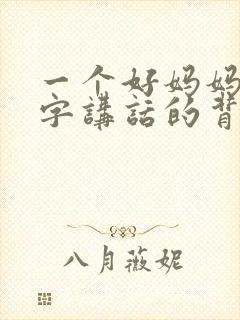 一个好妈妈
字講話的背
八月薇妮